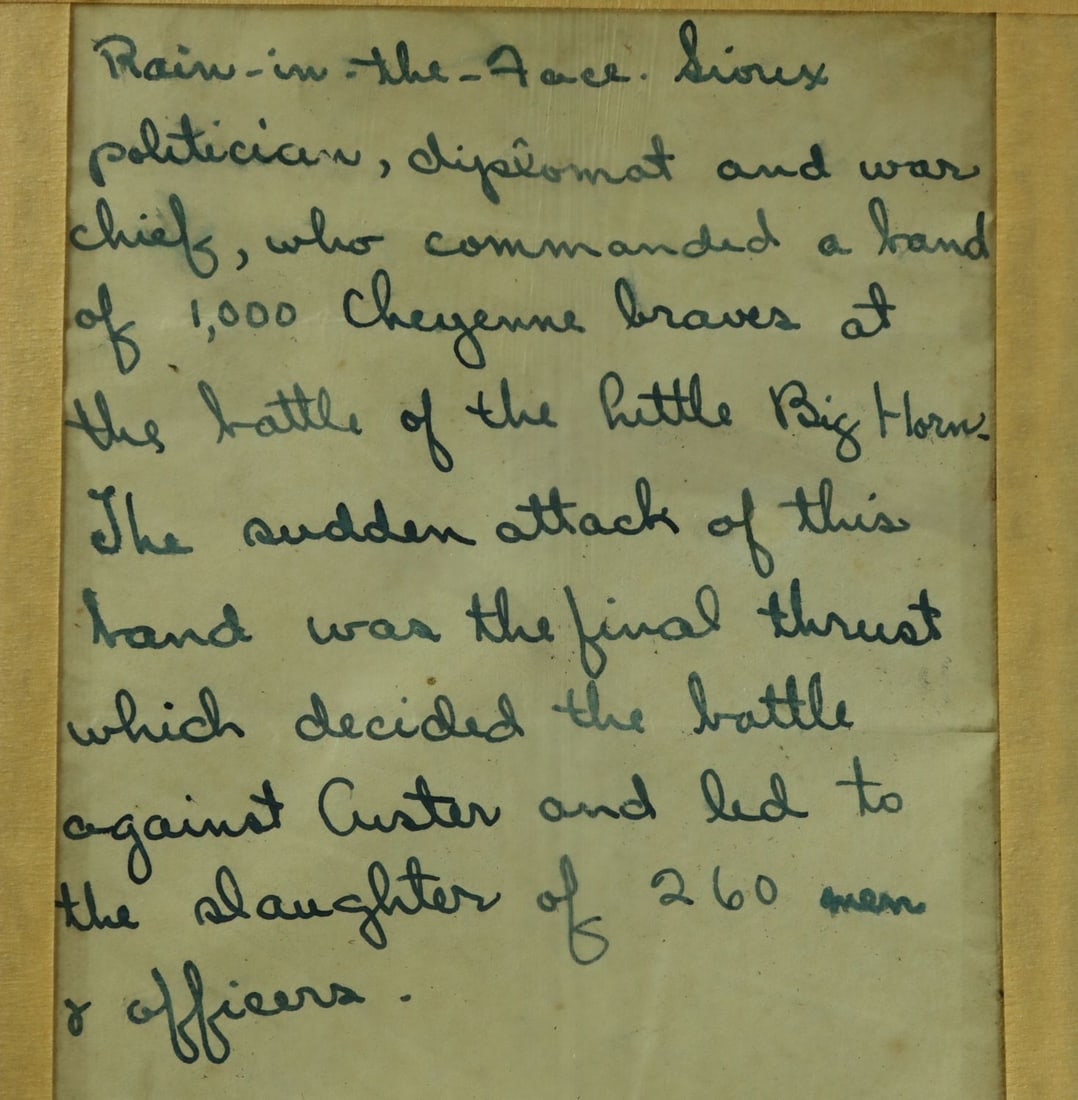 Rain-in-the-Face. Sioux
politician, diplomat and war
chief, who commanded a band
of 1,000 Cheyenne braves at
the battle of the Little Big Horn.
The sudden attack of this
band was the final thrust
which decided the battle
against Custer and led to
the slaughter of 260 men
& officers.